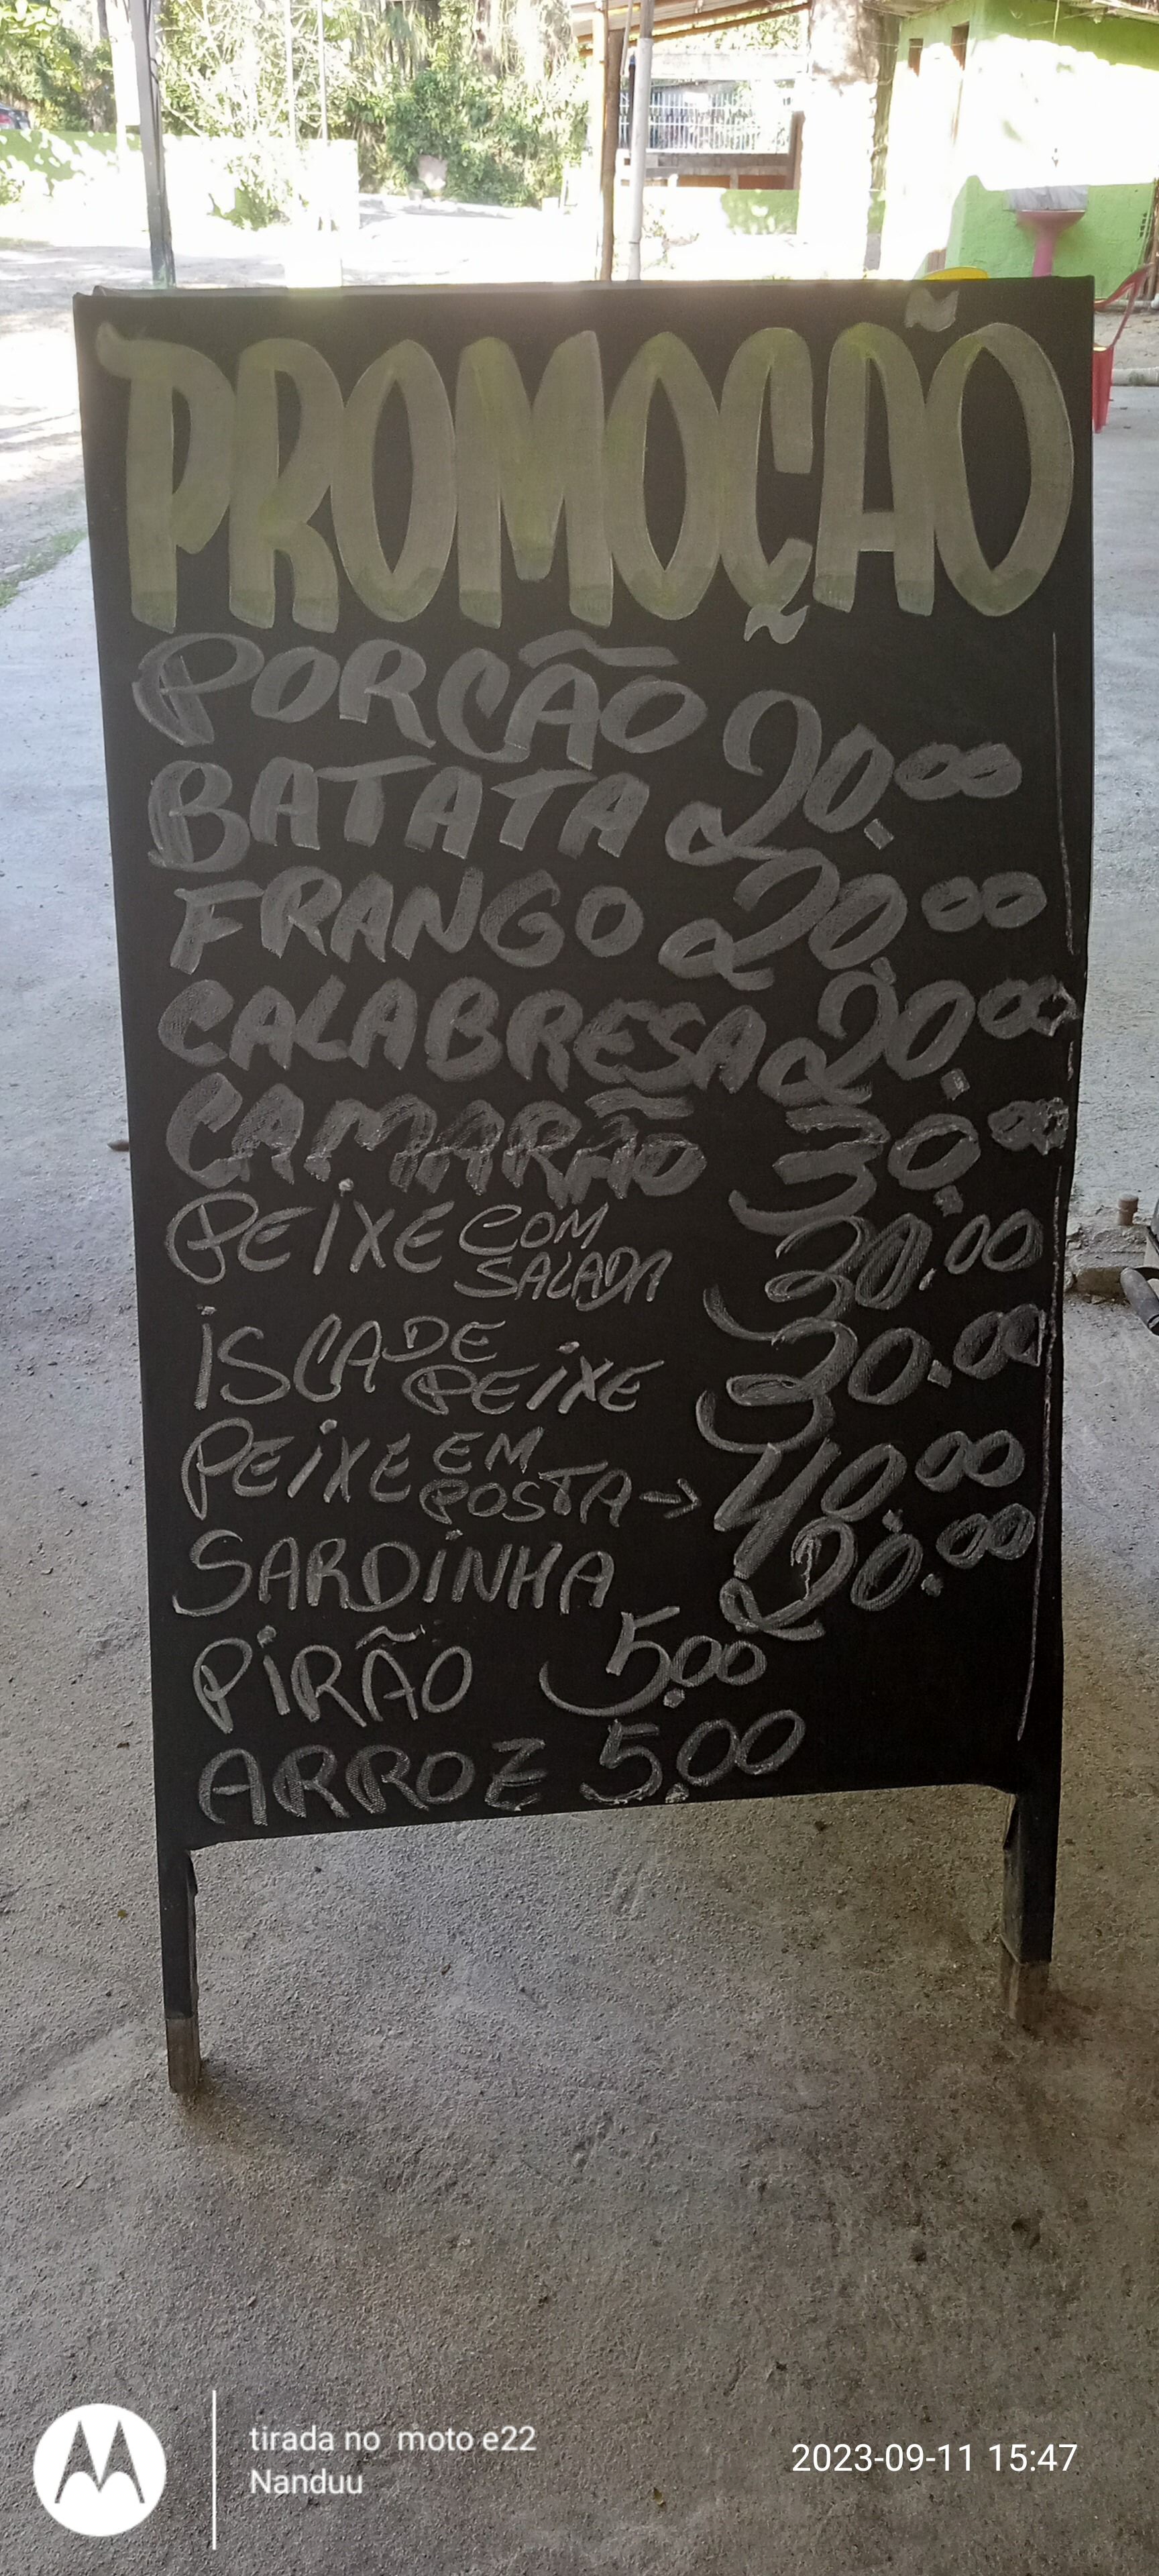 PROMOÇÃO
PORÇÃO
BATATA 20.00
FRANGO 20.00
CALABRESA 20.00
CAMARÃO 30.00
PEIXE COM SALADA 30.00
ISCA DE PEIXE 30.00
PEIXE EM POSTA → 40.00
SARDINHA 20.00
PIRÃO 5.00
ARROZ 5.00
tirada no moto e22
Nanduu
2023-09-11 15:47